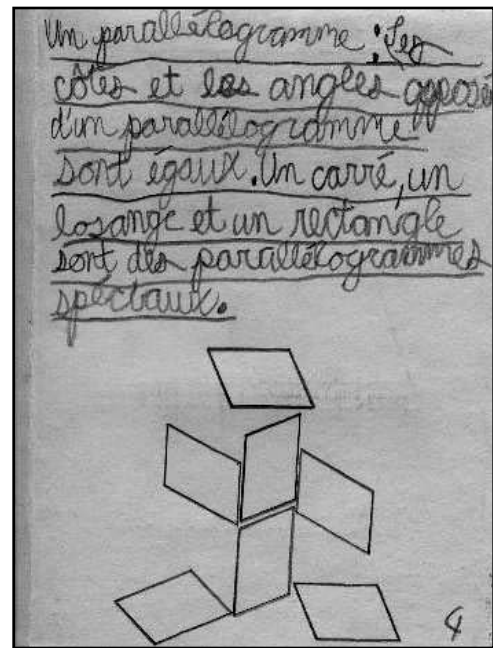 Un parallélogramme : Les
côtés et les angles opposé
d'un parallélogramme
sont égaux. Un carré, un
losange et un rectangle
sont des parallélogrammes
spéciaux.
4